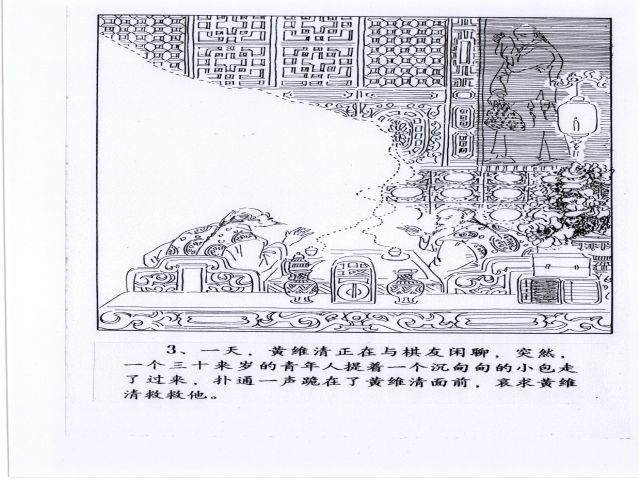 3、一天，黄维清正在与棋友闲聊，突然，
一个三十来岁的青年人提着一个沉甸甸的小包走
了过来，扑通一声跪在了黄维清面前，哀求黄维
清救救他。